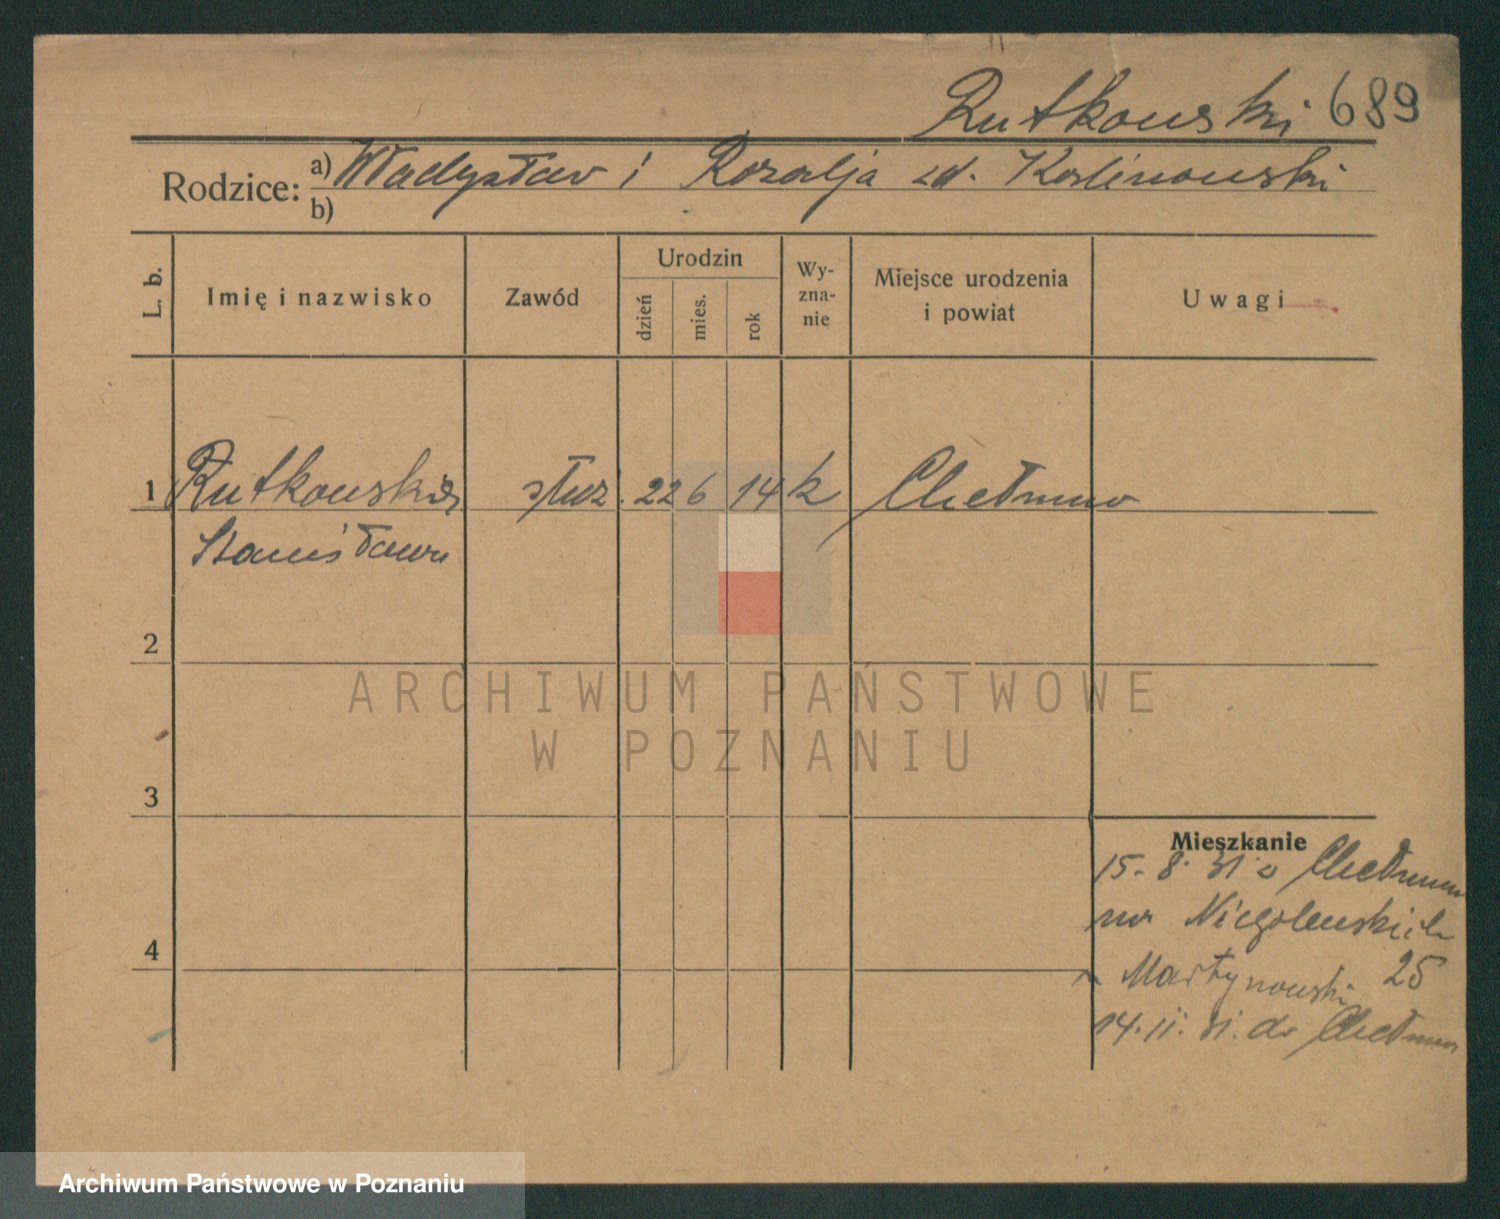 Rutkowski 689
Rodzice: a) Władysław i Rozalja zd. Kalinowski
b)
L. b.
Imię i nazwisko
Zawód
Urodzin
dzień
mies.
rok
Wy-
zna-
nie
Miejsce urodzenia
i powiat
Uwagi
1 Rutkowska służ. 22 6 14 k Chełmno
Stanisława
2
ARCHIWUM PAŃSTWOWE
W POZNANIU
3
Mieszkanie
15. 8. 31 z Chełmna
na Niegolewskich
Martynowski 25
14. 11. 31. do Chełmna
4
Archiwum Państwowe w Poznaniu